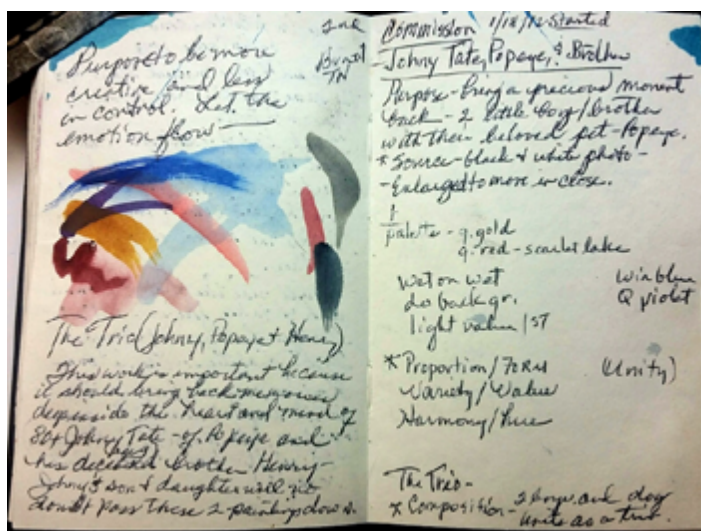 Purpose to be more
creative and less
in control. Let the
emotion flow —
2nd
TN
The Trio (Johny, Popeye & Henry)
This work is important because
it should bring back memories
deep inside the heart and mind of
80 Johny Tate - of Popeye and
his deceased brother Henry -
Johny's son & daughter will no
doubt pass these 2 paintings down.
Commission 1/18/12 Started
Johny Tate, Popeye, & Brother
Purpose - bring a precious moment
back - 2 little boys/brother
with their beloved pet - Popeye.
* Source - black & white photo -
- Enlarged to more in close.
palette - q. gold
q. red - scarlet lake
wet on wet
do back gr.
light value / 1ST
win blue
Q violet
* Proportion / FORM (Unity)
Variety / Value
Harmony / hue
The Trio -
* Composition - 2 boys and dog
unite as a trio.